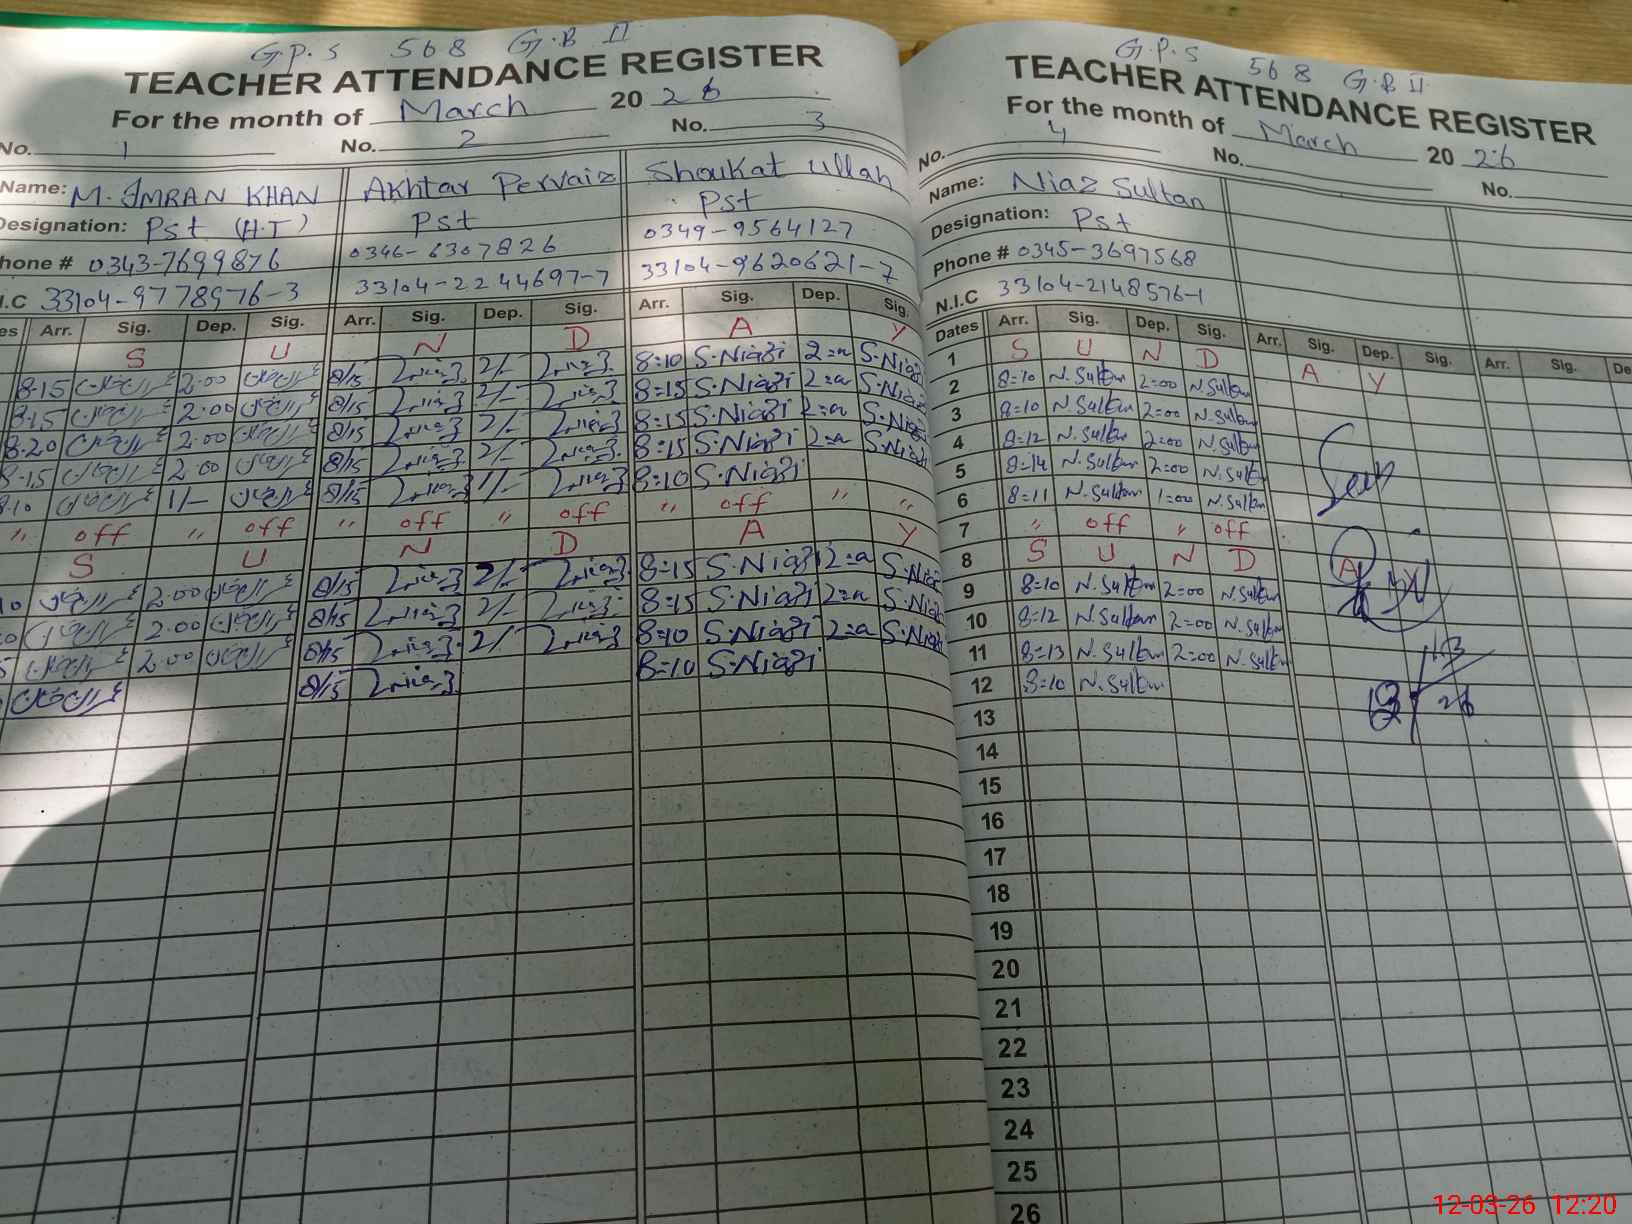 G.P.S 568 G.B II
TEACHER ATTENDANCE REGISTER
For the month of March 2026
No. 1 No. 2 No. 3
Name: M. IMRAN KHAN Akhtar Pervaiz Shoukat Ullah
Designation: Pst (H.T) Pst Pst
hone # 0343-7699876 0346-6307826 0349-9564127
I.C 33104-9778976-3 33104-2244697-7 33104-9620621-7
es Arr. Sig. Dep. Sig. Arr. Sig. Dep. Sig. Arr. Sig. Dep. Sig.
S U N D A Y
8.15 2.00 8/15 2/- 8:10 S.Niazi 2=a S.Niazi
8.15 2.00 8/15 2/- 8:15 S.Niazi 2=a S.Niazi
8.20 2.00 8/15 2/- 8:15 S.Niazi 2=a S.Niazi
8.15 2.00 8/15 2/- 8:15 S.Niazi 2=a S.Niazi
8.10 1/- 8/15 1/- 8:10 S.Niazi
" off " off " off " off " off " "
S U N D A Y
10 2.00 8/15 2/- 8:15 S.Niazi 2=a S.Niazi
2.00 8/15 2/- 8:15 S.Niazi 2=a S.Niazi
2.00 8/15 2/- 8:10 S.Niazi 2=a S.Niazi
8/15 8:10 S.Niazi
G.P.S 568 G.B II
TEACHER ATTENDANCE REGISTER
For the month of March 2026
No. 4 No. No.
Name: Niaz Sultan
Designation: Pst
Phone # 0345-3697568
N.I.C 33104-2148576-1
Dates Arr. Sig. Dep. Sig. Arr. Sig. Dep. Sig. Arr. Sig. De
1 S U N D A Y
2 8=10 N.Sultan 2=00 N.Sultan
3 8=10 N.Sultan 2=00 N.Sultan
4 8=12 N.Sultan 2=00 N.Sultan
5 8=14 N.Sultan 2=00 N.Sultan
6 8=11 N.Sultan 1=00 N.Sultan
7 " off " off
8 S U N D A
9 8=10 N.Sultan 2=00 N.Sultan
10 8=12 N.Sultan 2=00 N.Sultan
11 8=13 N.Sultan 2=00 N.Sultan
12 8=10 N.Sultan
13
14
15
16
17
18
19
20
21
22
23
24
25
26
12-03-26 12:20